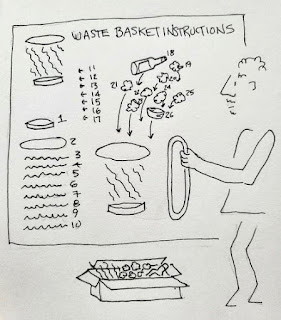 WASTE BASKET INSTRUCTIONS
18
19
11
12
13
14
15
16
17
21
24
25
26
1
2
3
4
5
6
7
8
9
10